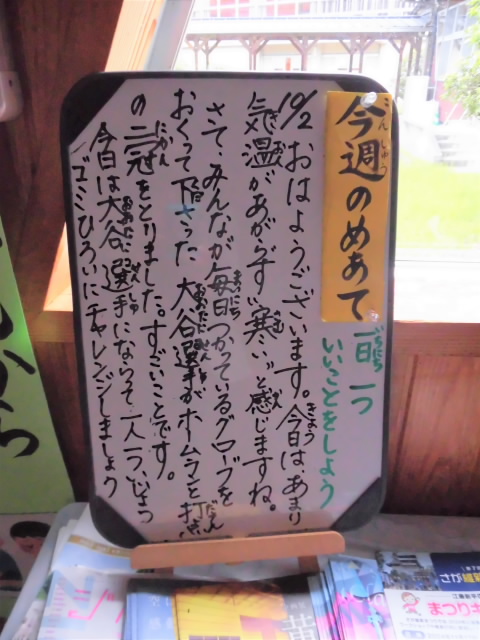 今週のめあて
こんしゅう
一日一つ
いちにち
いいことをしよう
10/2 おはようございます。今日は、あまり
きょう
気温があがらず"寒い"と感じますね。
さて、みんなが毎日つかっているグローブを
まいにち
おくって下さった大谷選手がホームランと打
の二冠をとりました。すごいことです。
にかん
今日は大谷選手にならって一人一つ、ひょっ
ゴミひろいにチャレンジしましょう
さが
まつり